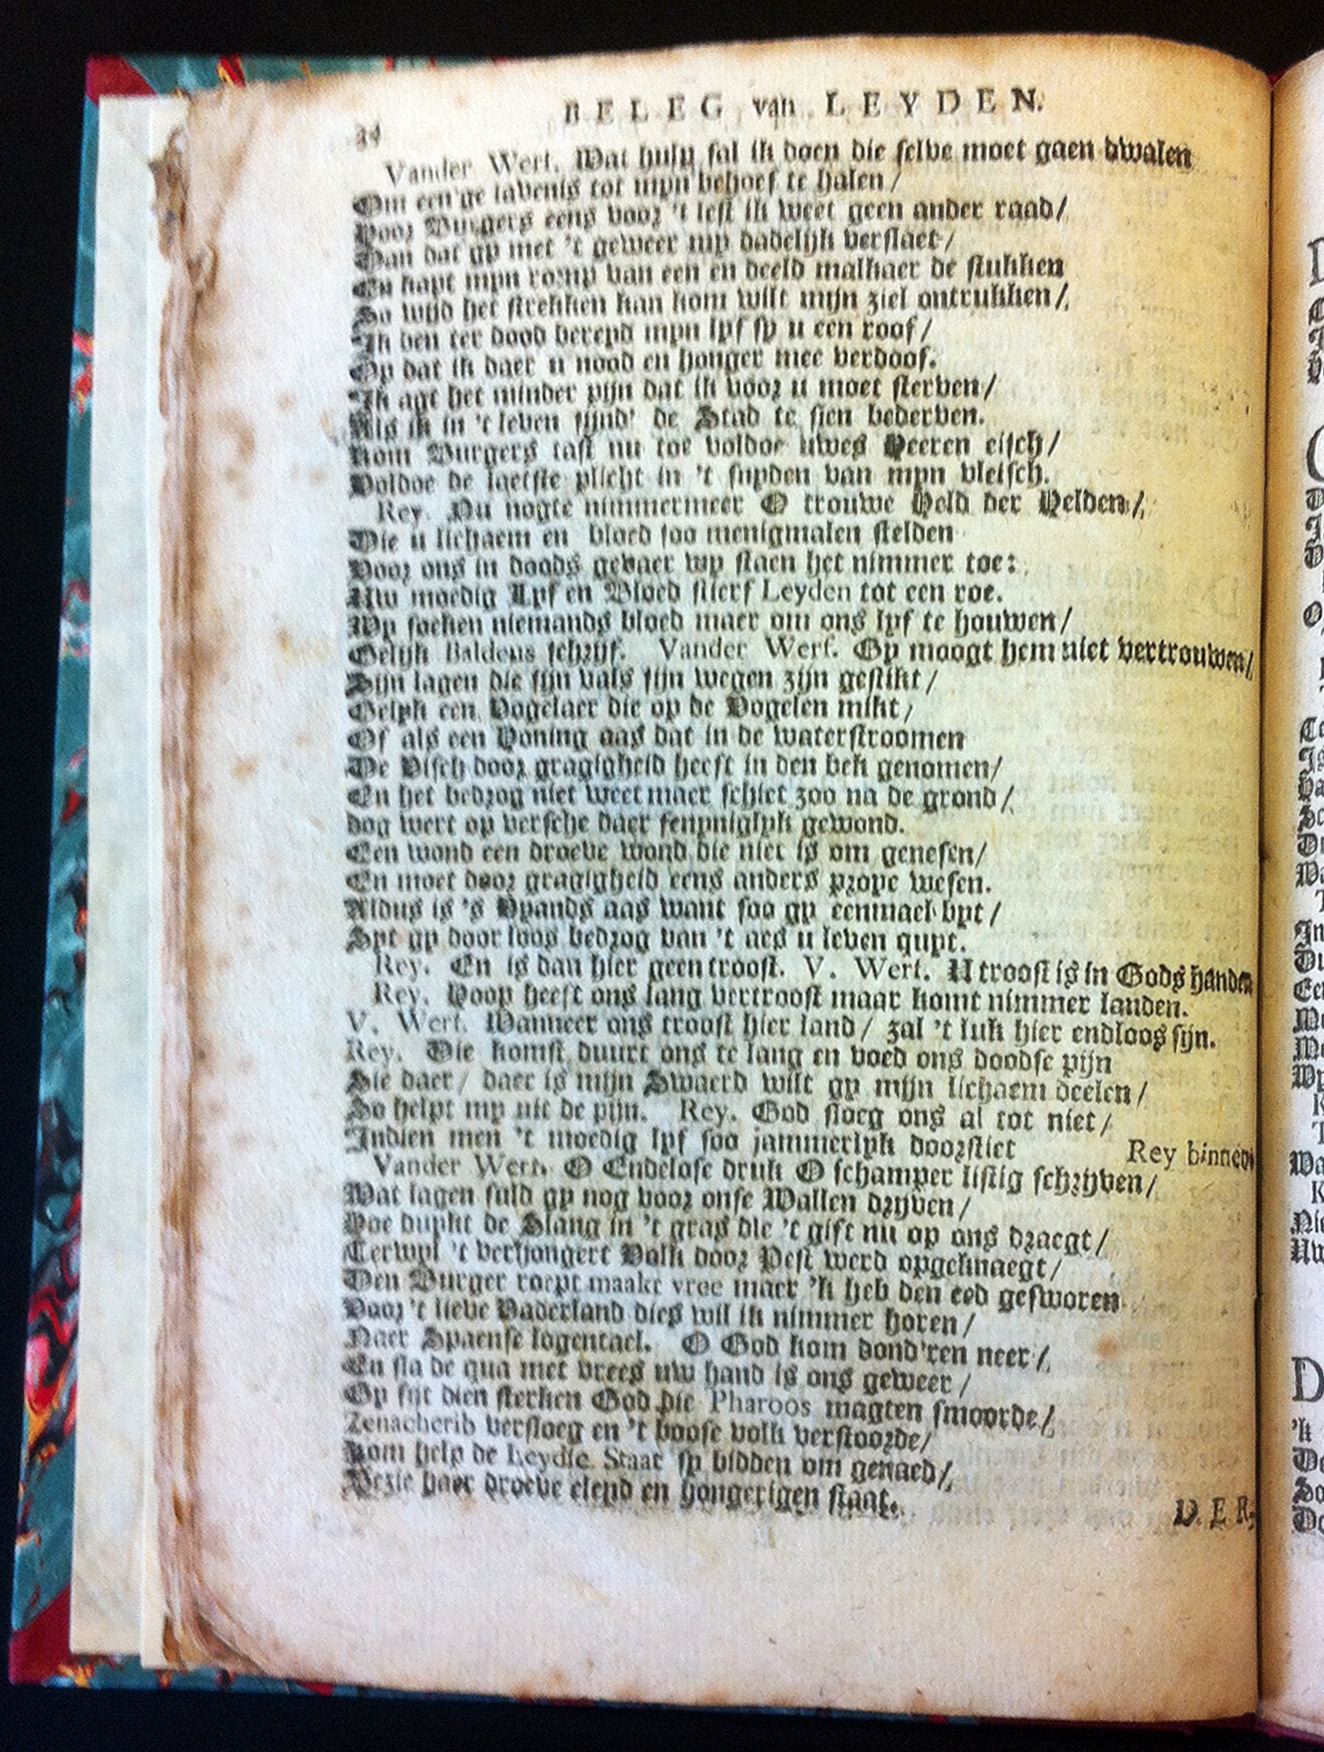 34
BELEG van LEYDEN.
Vander Werf. Wat hulp sal ik doen die selve moet gaen dwalen
Om een'ge lavenis tot myn behoef te halen /
Voor Burgers eens voor 't lest ik weet geen ander raad /
Dan dat gy met 't geweer my dadelijk verslaet /
En kapt myn romp van een en deeld malkaer de stukken
So wijd het strekken kan kom wilt mijn ziel ontrukken /
Ik ben ter dood bereyd myn lyf sy u een roof /
Op dat ik daer u nood en honger mee verdoof.
Ik agt het minder pijn dat ik voor u moet sterven /
Als ik in 't leven sijnd' de Stad te sien bederven.
Kom Burgers tast nu toe voldoe uwes Heeren eisch /
Voldoe de laetste plicht in 't snyden van myn vleisch.
Rey. Nu nogte nimmermeer O trouwe Held der Helden /
Die u lichaem en bloed soo menigmalen stelden
Voor ons in doods gevaer wy staen het nimmer toe:
Uw moedig Lyf en Bloed stierf Leyden tot een roe.
Wy soeken niemands bloed maer om ons lyf te houwen /
Gelijk Baldeus schrijf. Vander Werf. Gy moogt hem niet vertrouwen /
Sijn lagen die sijn vals sijn wegen zijn gestikt /
Gelyk een Vogelaer die op de Vogelen mikt /
Of als een Honing aas dat in de waterstroomen
De Visch door gragigheid heeft in den bek genomen /
En het bedrog niet weet maer schiet zoo na de grond /
dog wert op versche daer fenynighlyk gewond.
Een wond een droeve wond die niet is om genesen /
En moet door gragigheid eens anders prope wesen.
Aldus is 's Vyands aas want soo gy eenmael byt /
Syt gy door loos bedrog van 't aes u leven quyt.
Rey. En is dan hier geen troost. V. Werf. U troost is in Gods handen
Rey. Hoop heeft ons lang vertroost maar komt nimmer landen.
V. Werf. Wanneer ons troost hier land / zal 't luk hier endloos sijn.
Rey. Die komst duurt ons te lang en voed ons doodse pijn
Sie daer / daer is mijn Swaerd wilt gy mijn lichaem deelen /
So helpt my uit de pijn. Rey. God sloeg ons al tot niet /
Indien men 't moedig lyf soo jammerlyk doorstiet Rey binnen
Vander Werf. O Endelose druk O schamper listig schryven /
Wat lagen suld gy nog voor onse Wallen dryven /
Hoe duykt de Slang in 't gras die 't gift nu op ons draegt /
Terwyl 't verhongert Volk door Pest werd opgeknaegt /
Den Burger roept maakt vree maer 'k heb den eed gesworen
Voor 't lieve Vaderland dies wil ik nimmer horen /
Naer Spaense logentael. O God kom dond'ren neer /
En sla de qua met vrees uw hand is ons geweer /
Gy sijt dien sterken God die Pharoos magten smoorde /
Zenacherib versloeg en 't boose volk verstoorde /
Kom help de Leydse Staat sy bidden om genaed /
Bezie haer droeve elend en hongerigen staat.
DER-